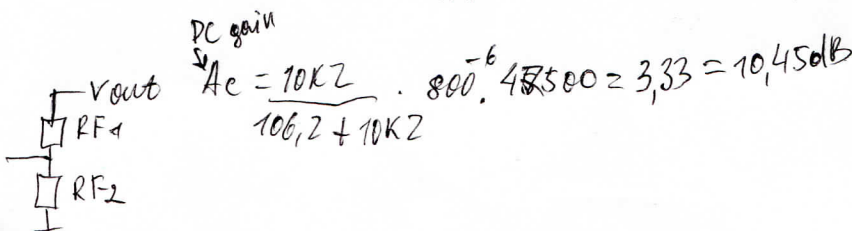 DC gain
Vout
Ac = 10K2 / 106,2 + 10K2 · 800⁻⁶ · 47500 = 3,33 = 10,45dB
RF1
RF2